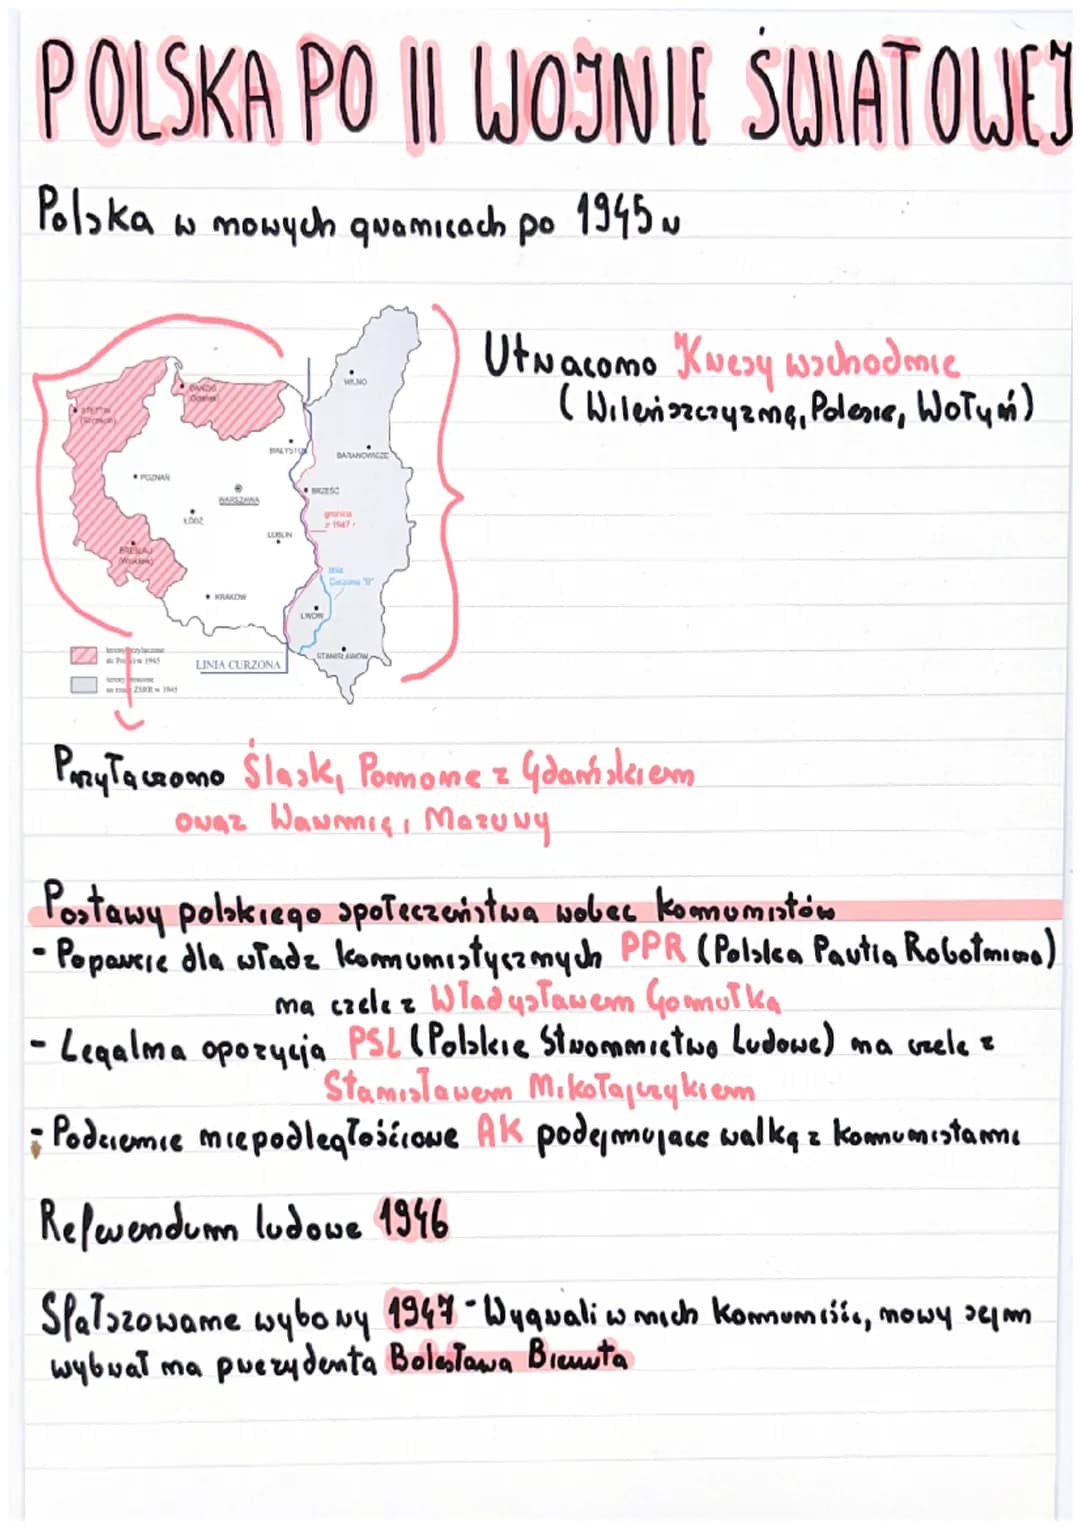 POLSKA PO II WOJNIE ŚWIATOWEJ
Polska w nowych granicach po 1945r
WILNO
DANZIG
(Gdańsk)
STETTIN
(Szczecin)
BIAŁYSTOK
BARANOWICZE
POZNAŃ
BRZEŚĆ
WARSZAWA
ŁÓDŹ
granica
z 1947 r.
LUBLIN
BRESLAU
(Wrocław)
linia
Curzona "B"
KRAKÓW
LWÓW
STANISŁAWÓW
LINIA CURZONA
tereny przyłączone
do Polski w 1945
tereny
na rzecz ZSRR w 1945
Utracono Kresy wschodnie
(Wileńszczyznę, Polesie, Wołyń)
Przyłączono Śląsk, Pomorze z Gdańskiem
oraz Warmię i Mazury
Postawy polskiego społeczeństwa wobec komunistów
- Poparcie dla władz komunistycznych PPR (Polska Partia Robotnicza)
na czele z Władysławem Gomułką
- Legalna opozycja PSL (Polskie Stronnictwo Ludowe) na czele z
Stanisławem Mikołajczykiem
- Podziemie niepodległościowe AK podejmujące walkę z komunistami
Referendum ludowe 1946
Sfałszowane wybory 1947 - Wygrali w nich komuniści, nowy sejm
wybrał na prezydenta Bolesława Bieruta